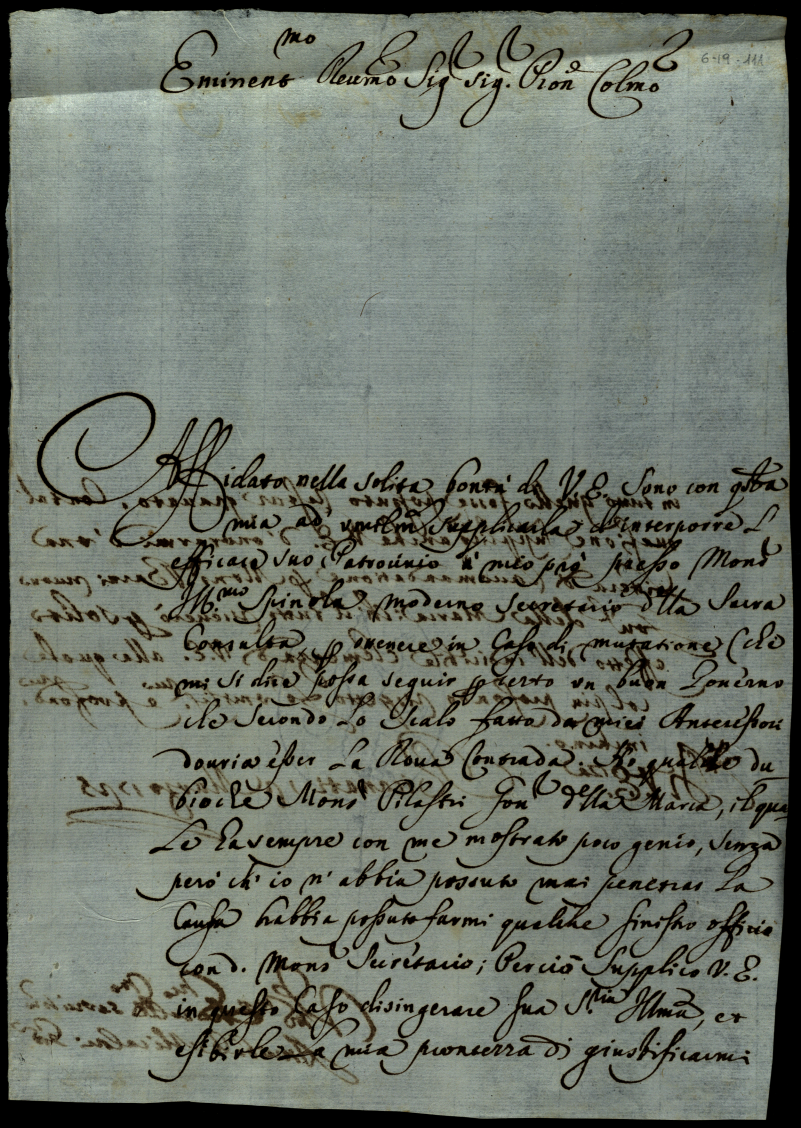 6-19-111
Eminent.mo Reumo Sig.r Sig.r Pron.e Colmo
Affidato nella solita bontà di V.E. sono con q.sta
mia ad umilm.te supplicarla d'interporre l'
efficace suo Patrocinio à mio prò presso Mons.r
Ill.mo Spinola moderno Secretario d.lla Sacra
Consulta, p ottenere in caso di mutatione (che
mi si dice possa seguir p certo un buon Gouerno
che secondo lo scalo fatto da miei Antecessori
douria esser la Roua Contrada. Ho qualche du
bio che Mons.r Pilastri Gou.r d.lla Marca, il qua
le ha sempre con me mostrato poco genio, senza
però ch' io n' abbia possuto mai penetrar la
causa habbia possuto farmi qualche sinistro officio
con d. Mons.r Secretario; Perciò supplico V.E.
in questo caso disingerare sua S.ria Illma, et
esibirle la mia prontezza di giustificarmi